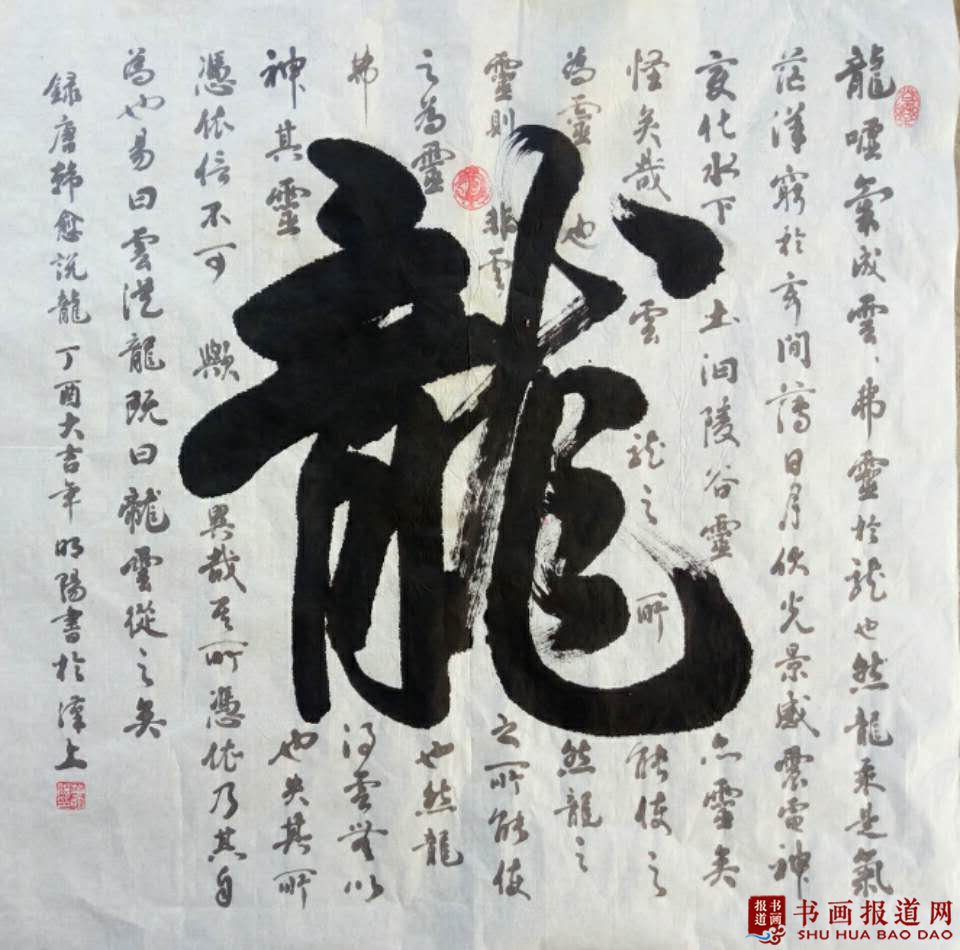 龍
龍噓氣成雲弗靈於龍也然龍乘是氣
茫洋窮於玄間薄日月伏光景感震電神
變化水下土汩陵谷靈亦靈矣
怪矣哉雲龍之所能使之
為靈也然龍之
靈則非雲之所能使
之為靈也然龍
弗得雲無以
神其靈也失其所
憑依信不可歟異哉其所憑依乃其自
為也易曰雲從龍既曰龍雲從之矣
録唐韓愈説龍丁酉大吉年明陽書於漢上
书画报道
书画报道网
SHU HUA BAO DAO